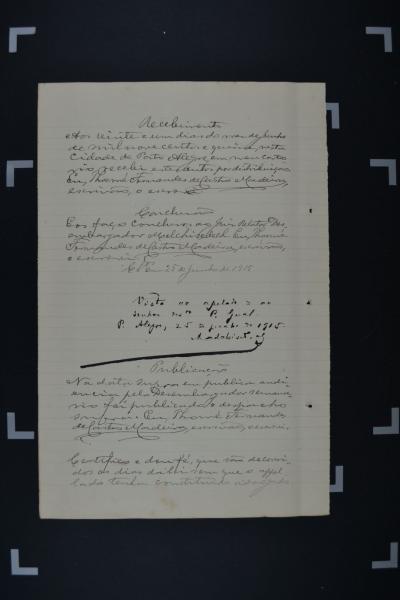 Recebimento
Aos vinte e um dias do mez de junho
de mil nove centos e quinze, nesta
cidade de Porto Alegre, em meu carto
rio, recebi estes autos por distribuição
Eu, Thomé Fernandes de Castro Madeira,
escrivão, o escrevi
Conclusão
E os faço conclusos ao Juiz Relator Des
embargador Melchisedeth. Eu, Thomé
Fernandes de Castro Madeira, escrivão,
o escrevi
Em 25 de junho de 1915
Vista ao apelado e ao
senhor P. Geral
P. Alegre, 25 junho 1915.
Publicação
Na data supra em publica audi
encia pelo Desembargador semana
rio foi publicado o despacho
supra. Eu, Thomé Fernandes
de Castro Madeira, escrivão, escrevi.
Certifico e dou fé, que são decorri
dos os dias da lei sem que o appel
lado tenha constituido advogado